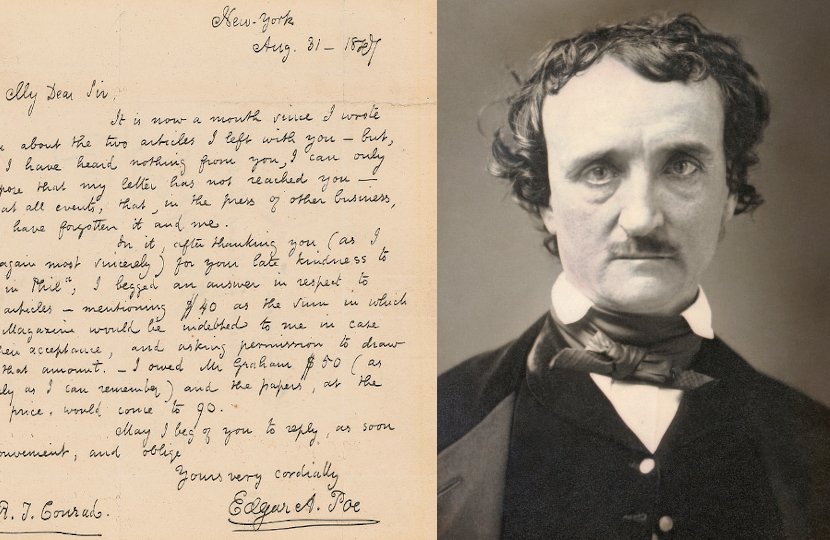 New-York
Aug. 31 – 1847
My Dear Sir,
It is now a month since I wrote
about the two articles I left with you – but,
I have heard nothing from you, I can only
pose that my letter has not reached you –
at all events, that, in the press of other business,
have forgotten it and me.
In it, after thanking you (as I
again most sincerely) for your late kindness to
in Phila, I begged an answer in respect to
articles – mentioning $40 as the sum in which
Magazine would be indebted to me in case
acceptance, and asking permission to draw
that amount. – I owed Mr Graham $50 (as
ly as I can remember) and the papers, at the
price, would come to 90.
May I beg of you to reply, as soon
convenient, and oblige
Yours very cordially
Edgar A. Poe
R. T. Conrad.